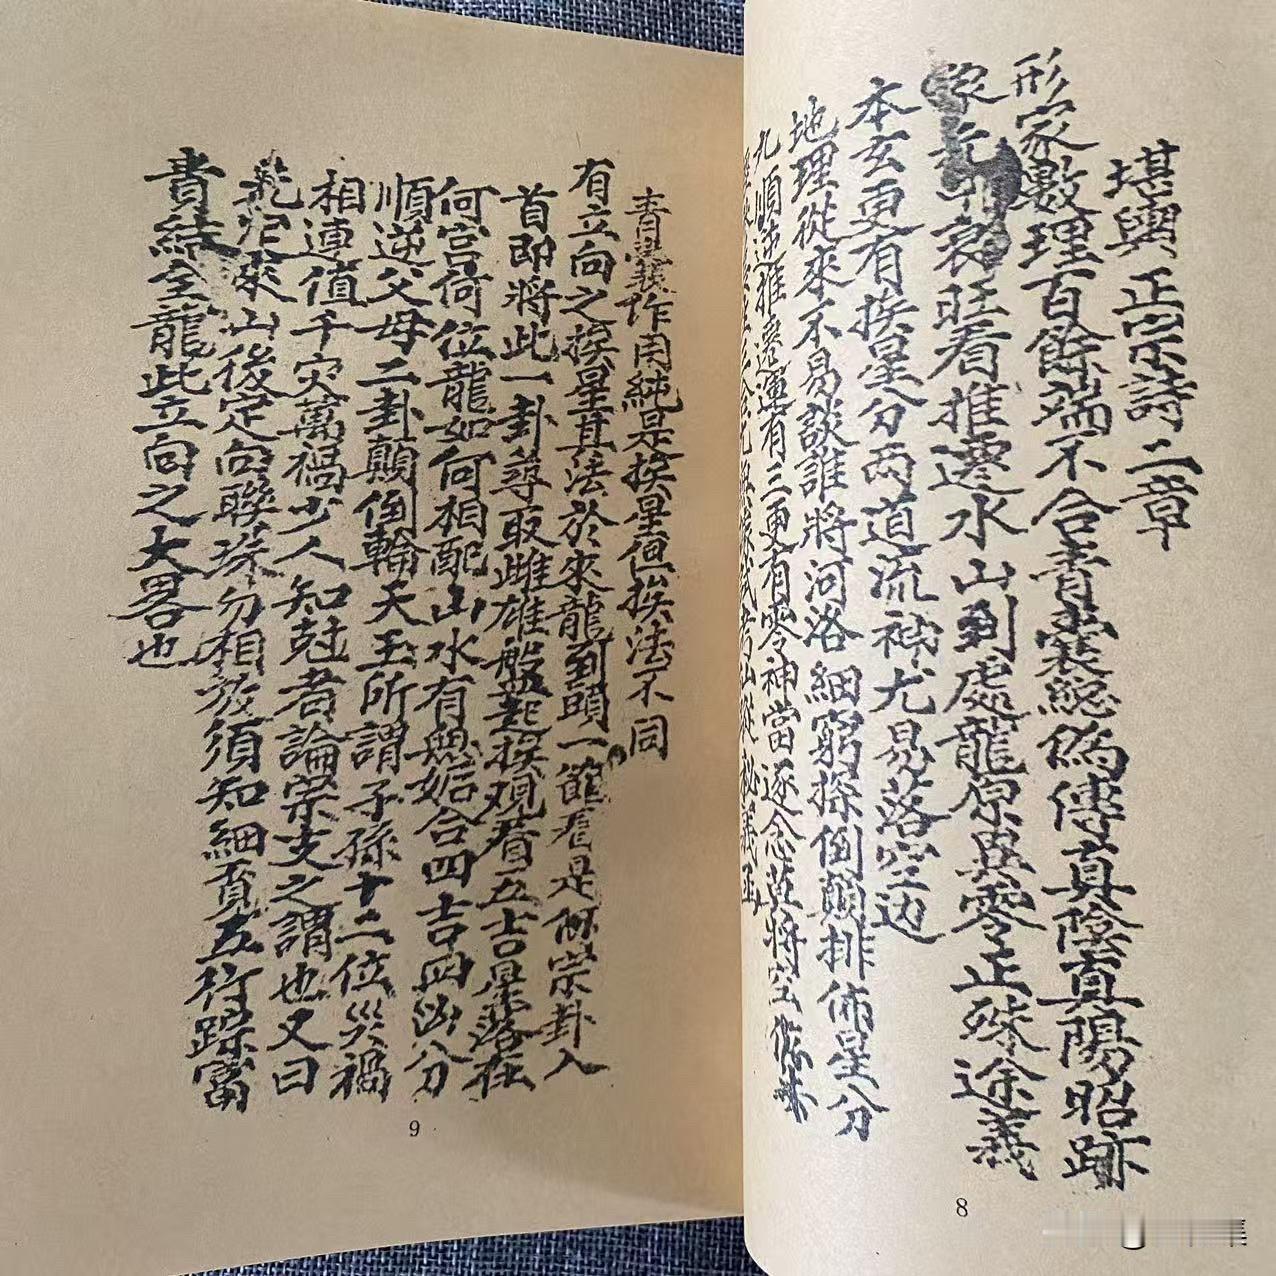 堪輿正宗詩二章
形家數理百餘端不合青囊總偽傳真陰真陽昭跡
衰旺看推遷水山到處龍原異零正殊途義
本玄更有挨星分兩道流神尤易落空边
地理從來不易談誰將河洛細窮探倒顛排佈星分
九順逆推遷運有三更有零神當逐念莫將空
8
青囊作用純是挨星但挨法不同
有立向之挨星其法於來龍到頭一節看是何宗卦入
首即將此一卦尋取雌雄盤起挨观看五吉星落在
何宮何位龍如何相配山水有無姤合四吉四凶分
順逆父母二卦顛倒輪天玉所謂子孫十二位災禍
相連值千灾萬禍少人知尅者論宗支之謂也又曰
來山後定向聯珠勿相放須知細覓五行踪富
貴結全龍此立向之大畧也
9